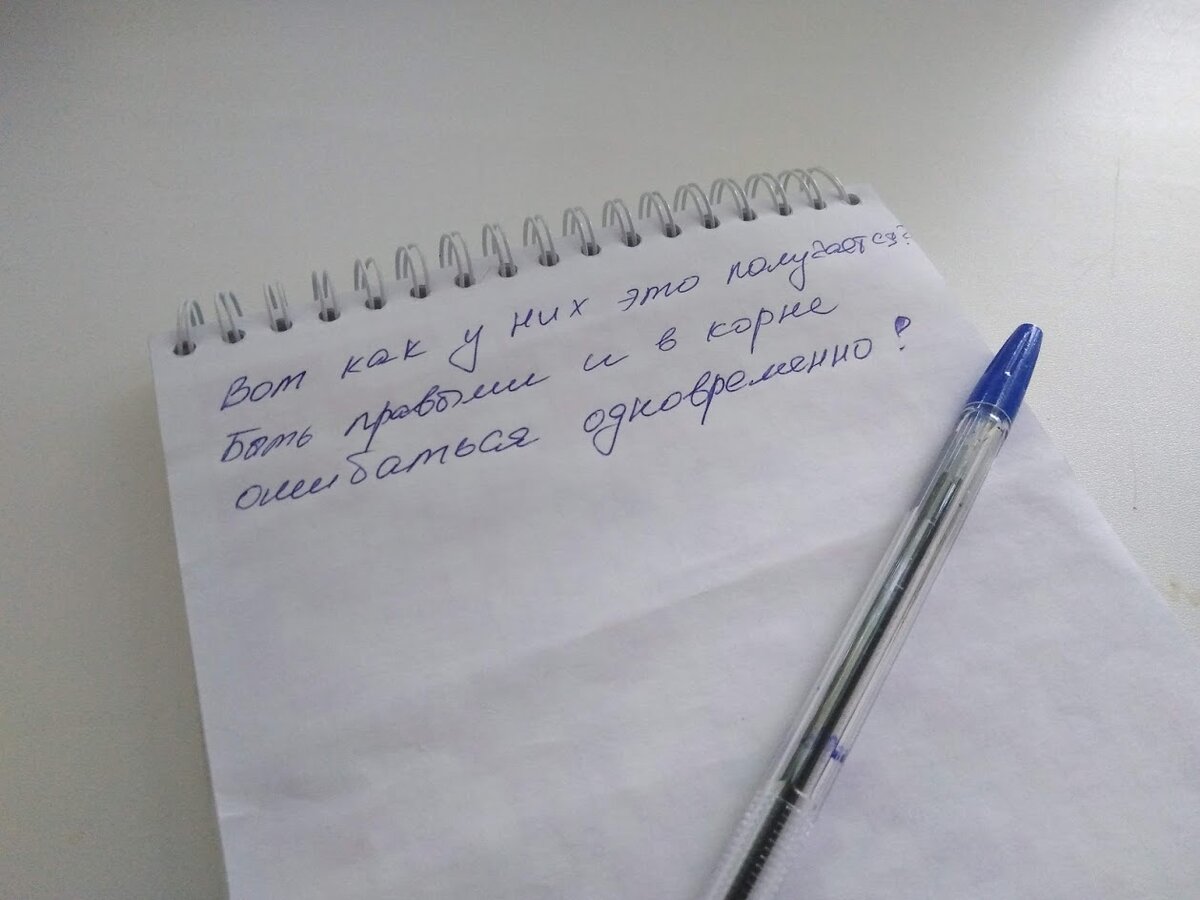 Вот как у них это получается?
Быть правыми и в корне
ошибаться одновременно?